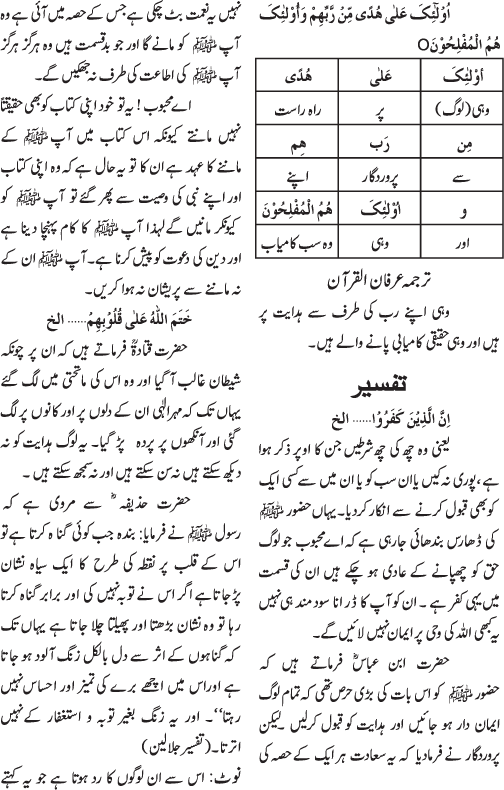 اُوْلٰٓئِکَ عَلٰی ھُدًی مِّنْ رَّبِّھِمْ وَاُوْلٰٓئِکَ
ھُمُ الْمُفْلِحُوْنَO
اُوْلٰٓئِکَ عَلٰی ھُدًی
وہی (لوگ) پر راہ راست
مِن رَبّ ھِم
سے پروردگار اپنے
و اُوْلٰٓئِکَ ھُمُ الْمُفْلِحُوْنَ
اور وہی وہ سب کامیاب
ترجمہ عرفان القرآن
وہی اپنے رب کی طرف سے ہدایت پر
ہیں اور وہی حقیقی کامیابی پانے والے ہیں۔
تفسیر
اِنَّ الَّذِیْنَ کَفَرُوْا...... الخ
یعنی وہ چھ کی چھ شرطیں جن کا اوپر ذکر ہوا
ہے، پوری نہ کیں یا ان سب کو یا ان میں سے کسی ایک
کو بھی قبول کرنے سے انکار کردیا۔ یہاں حضور ﷺ
کی ڈھارس بندھائی جارہی ہے کہ اے محبوب جو لوگ
حق کو چھپانے کے عادی ہو چکے ہیں ان کی قسمت
میں یہی کفر ہے۔ ان کو آپ کا ڈرانا سود مند ہی نہیں
یہ کبھی اللہ کی وحی پر ایمان نہیں لائیں گے۔
حضرت ابن عباسؓ فرماتے ہیں کہ
حضور ﷺ کو اس بات کی بڑی حرص تھی کہ تمام لوگ
ایمان دار ہو جائیں اور ہدایت کو قبول کرلیں لیکن
پروردگار نے فرمادیا کہ یہ سعادت ہر ایک کے حصہ کی
نہیں یہ نعمت بٹ چکی ہے جس کے حصہ میں آئی ہے وہ
آپ ﷺ کو مانے گا اور جو بدقسمت ہیں وہ ہرگز ہرگز
آپ ﷺ کی اطاعت کی طرف نہ جھکیں گے۔
اے محبوب! یہ تو خود اپنی کتاب کو بھی حقیقتاً
نہیں مانتے کیونکہ اس کتاب میں آپ ﷺ کے
ماننے کا عہد ہے ان کا تو یہ حال ہے کہ وہ اپنی کتاب
اور اپنے نبی کی وصیت سے پھر گئے تو آپ ﷺ کو
کیونکر مانیں گے لہذا آپ ﷺ کا کام پہنچا دینا ہے
اور دین کی دعوت کو پیش کرنا ہے۔ آپ ﷺ ان کے
نہ ماننے سے پریشان نہ ہوا کریں۔
خَتَمَ اللّٰہُ عَلٰی قُلُوْبِھِمْ...... الخ
حضرت قتادہؓ فرماتے ہیں کہ ان پر چونکہ
شیطان غالب آ گیا اور وہ اس کی ماتحتی میں لگ گئے
یہاں تک کہ مہر الٰہی ان کے دلوں پر اور کانوں پر لگ
گئی اور آنکھوں پر پردہ پڑ گیا۔ یہ لوگ ہدایت کو نہ
دیکھ سکتے ہیں نہ سن سکتے ہیں اور نہ سمجھ سکتے ہیں۔
حضرت حذیفہؓ سے مروی ہے کہ
رسول ﷺ نے فرمایا: بندہ جب کوئی گناہ کرتا ہے تو
اس کے قلب پر نقطہ کی طرح کا ایک سیاہ نشان
پڑ جاتا ہے اگر اس نے توبہ نہیں کی اور برابر گناہ کرتا
رہا تو وہ نشان بڑھتا اور پھیلتا چلا جاتا ہے یہاں تک
کہ گناہوں کے اثر سے دل بالکل زنگ آلود ہو جاتا
ہے اور اس میں اچھے برے کی تمیز اور احساس نہیں
رہتا‘‘۔ اور یہ زنگ بغیر توبہ و استغفار کے نہیں
اترتا۔ (تفسیر جلالین)
نوٹ: اس سے ان لوگوں کا رد ہوتا ہے جو یہ کہتے